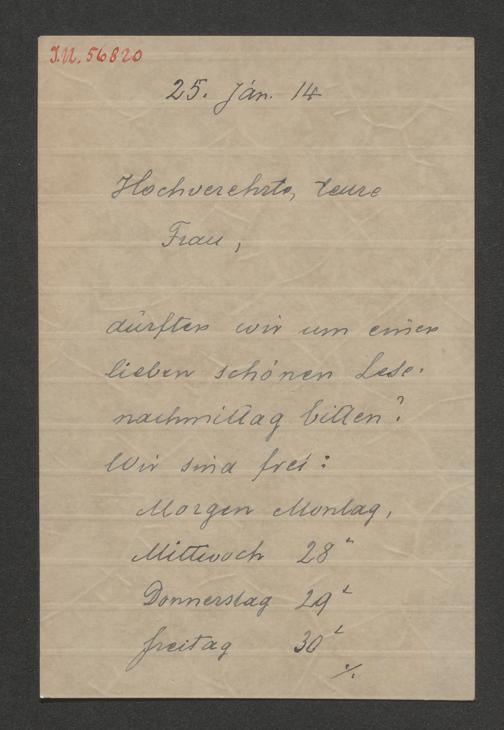 I.N. 56820
25. Jän. 14
Hochverehrte, teure
Frau,
dürften wir um einen
lieben schönen Lese-
nachmittag bitten?
Wir sind frei:
Morgen Montag,
Mittwoch 28"
Donnerstag 29
Freitag 30
./.